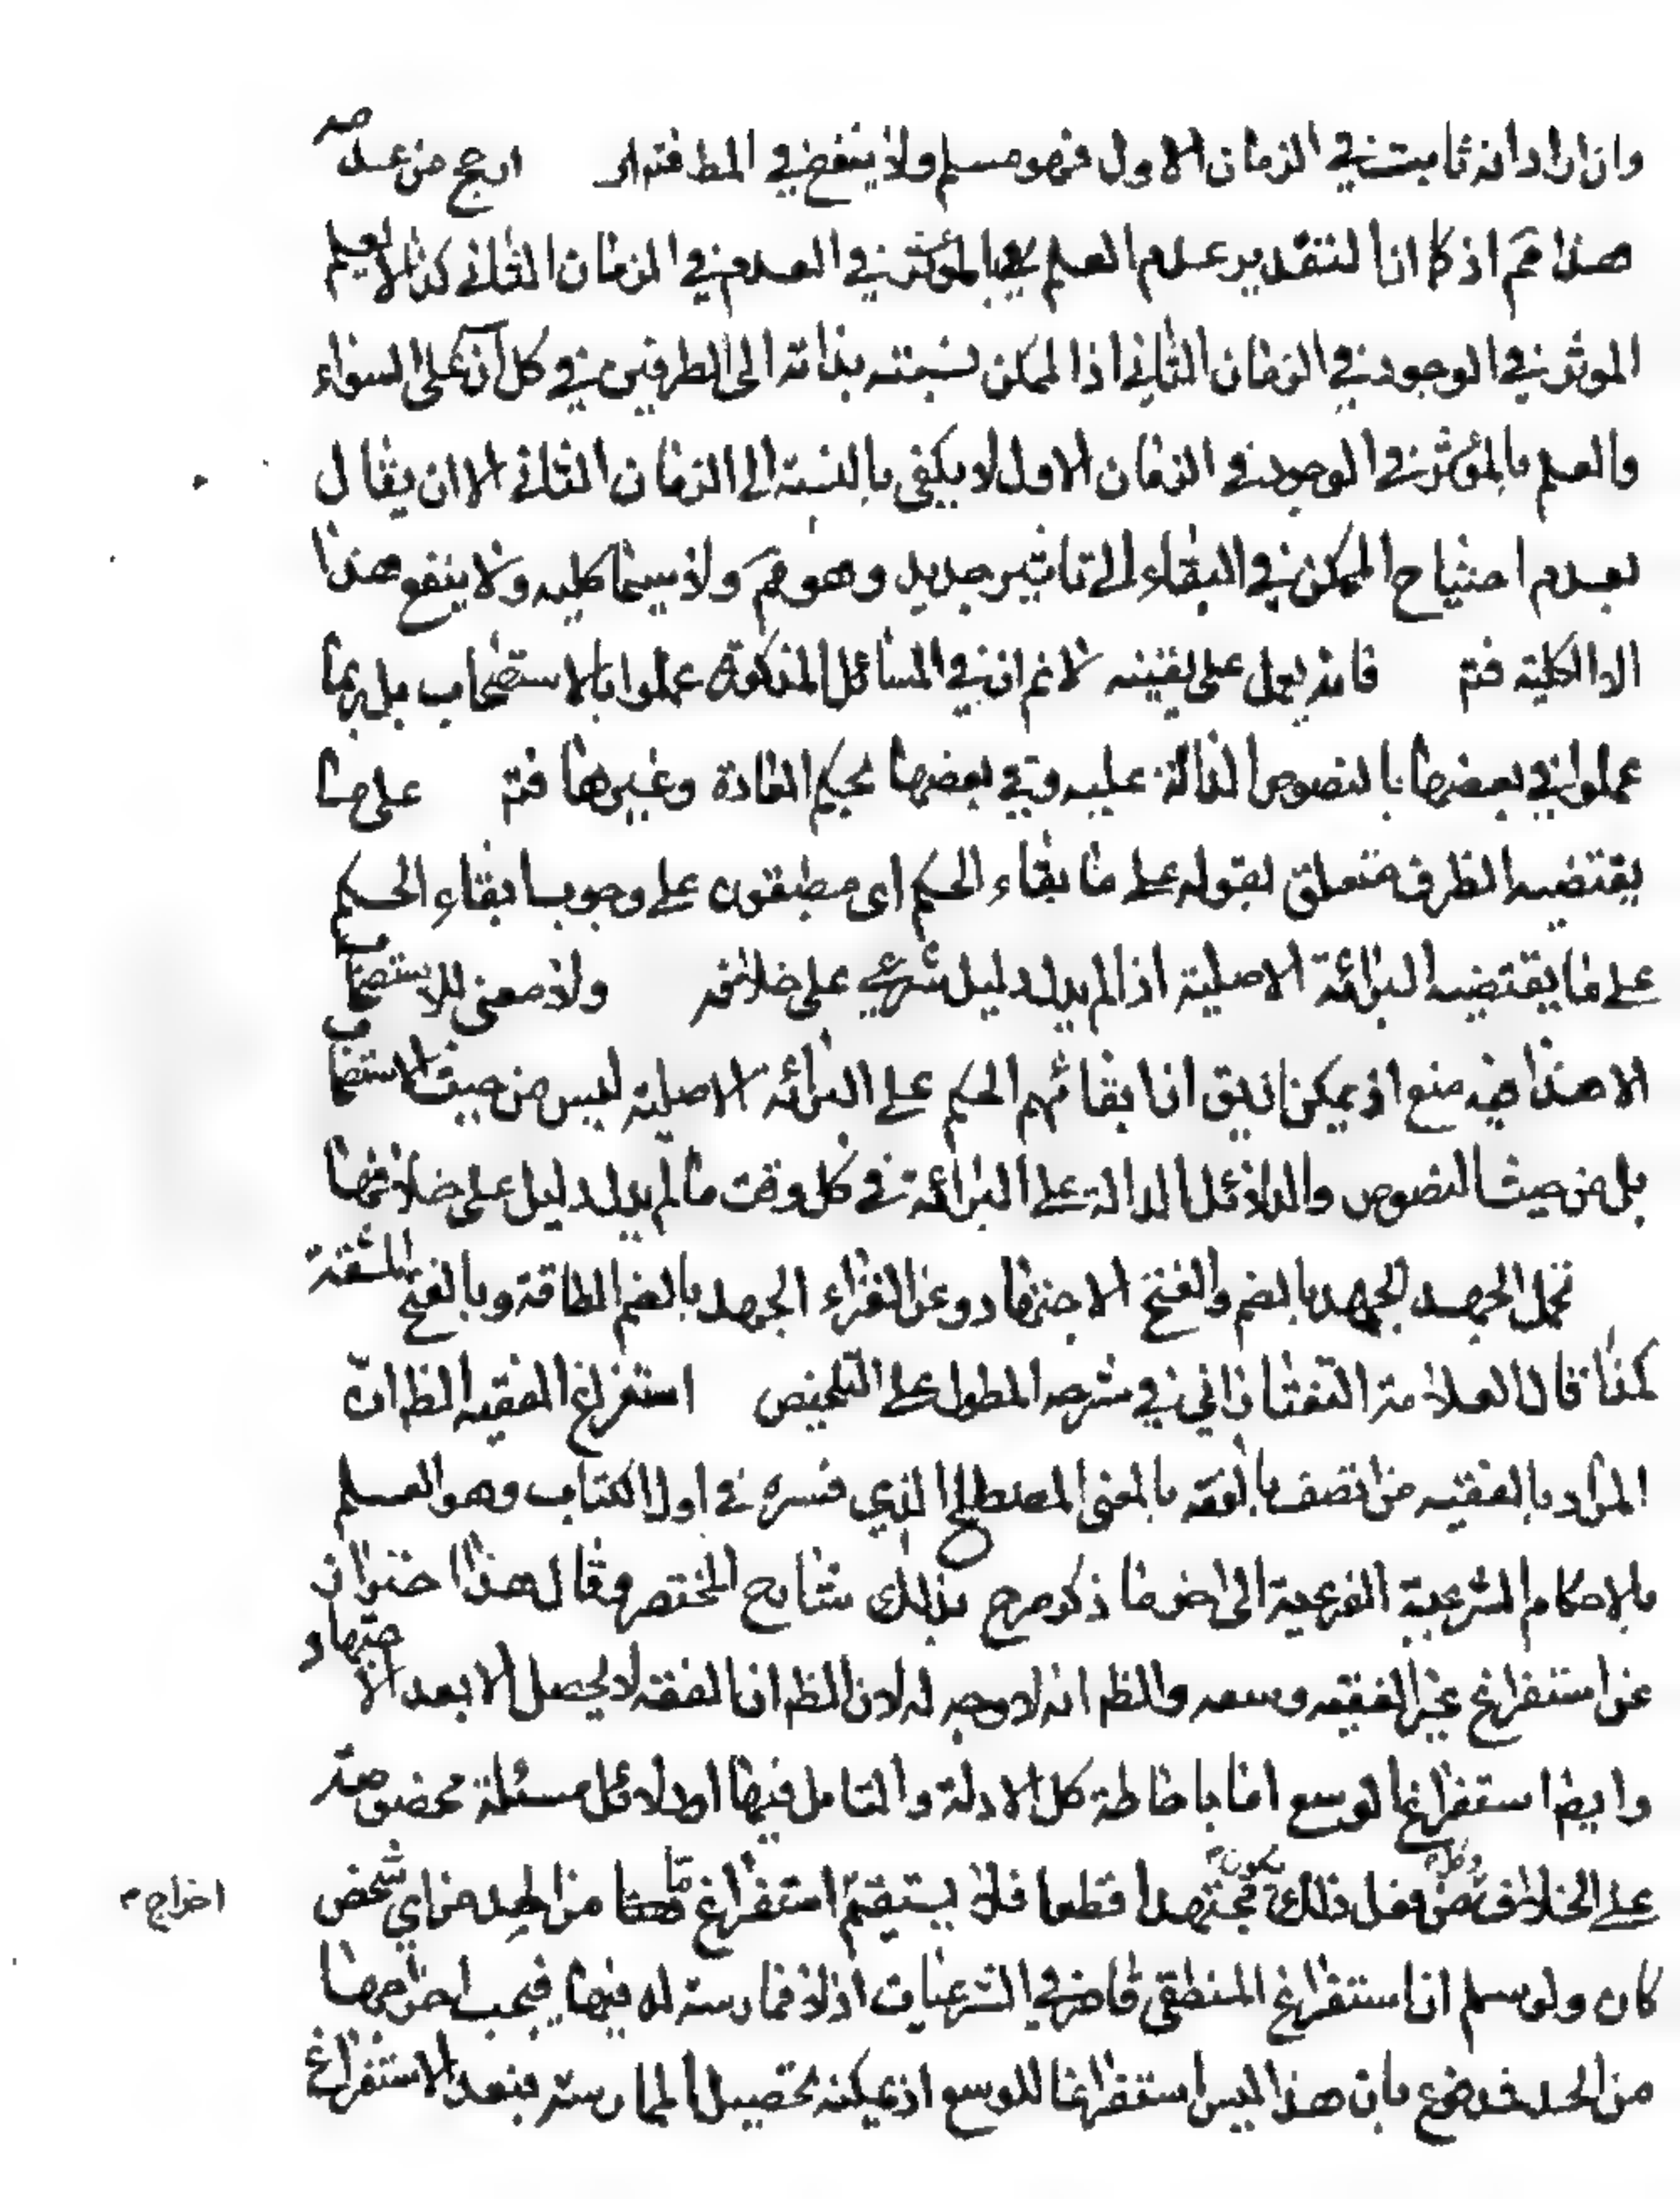 وان اراد انه ثابت في الزمان الاول فهو مسلم ولا ينفع في المط فتدبر ارجح من عدمه
هذا مم اذ كما ان التقدير عدم العلم بالمؤثر في العدم في الزمان الثاني كذا لا يعلم
الموثر في الوجود في الزمان الثاني اذ الممكن نسبته بذاته الى الطرفين في كل آن على السواء
والعلم بالمؤثر في الوجود في الزمان الاول لا يكفي بالنسبة الى الزمان الثاني الا ان يقال
بعدم احتياج الممكن في البقاء الى تاثير جديد وهو مم ولا سيما كليه ولا ينفع هذا
الا الكلية فتم فانه يعمل على يقينه لا نم ان في المسائل المذكورة عملوا بالاستصحاب بل ربما
عملوا في بعضها بالنصوص الدالة عليه وفي بعضها بحكم العادة وغيرها فتم على ما
يقتضيه الظرف متعلق بقوله على ما بقاء الحكم اى مطبقون على وجوب ابقاء الحكم
على ما يقتضيه البرائة الاصلية اذا لم يدل دليل شرعي على خلافه ولا معنى للاستصحاب
الا هذا فيه منع اذ يمكن ان يق ان ابقائهم الحكم على البرائة الاصلية ليس من حيث الاستصحاب
بل من حيث النصوص والدلائل الدالة على البرائة في كل وقت ما لم يدل دليل على خلافها
تحمل الجهد الجهد بالضم والفتح الاجتهاد وعن الفراء الجهد بالضم الطاقة وبالفتح المشقة
كذا قال العلامة التفتازاني في شرحه المطول على التلخيص استفراغ الفقيه الظ ان
المراد بالفقيه من اتصف بالفقه بالمعنى المصطلح الذي فسره في اول الكتاب وهو العلم
بالاحكام الشرعية الفرعية الى اخر ما ذكر صرح بذلك شارح المختصر وقال هذا احتراز
عن استفراغ غير الفقيه وسعه والظ انه لا وجه له لان الظ ان الفقه لا يحصل الا بعد الاجتهاد
وايضا استفراغ الوسع اما باحاطة كل الادلة والتامل فيها او دلائل مسئلة مخصوصة
على الخلاف وكل من فعل ذلك يكون مجتهدا قطعا فلا يستقيم استفراغ ما من الحد من اي شخص
اخراج
كان ولو سلم ان استفراغ المنطقي قاصر في الشرعيات اذ لا ممارسة له فيها فيجب اخراجها
من الحد فمدفوع بان هذا ليس استفراغا للوسع اذ يمكنه تحصيل الممارسة فبعد الاستفراغ